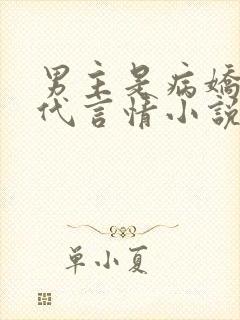 男主是病嬌
代言情小說
単小夏